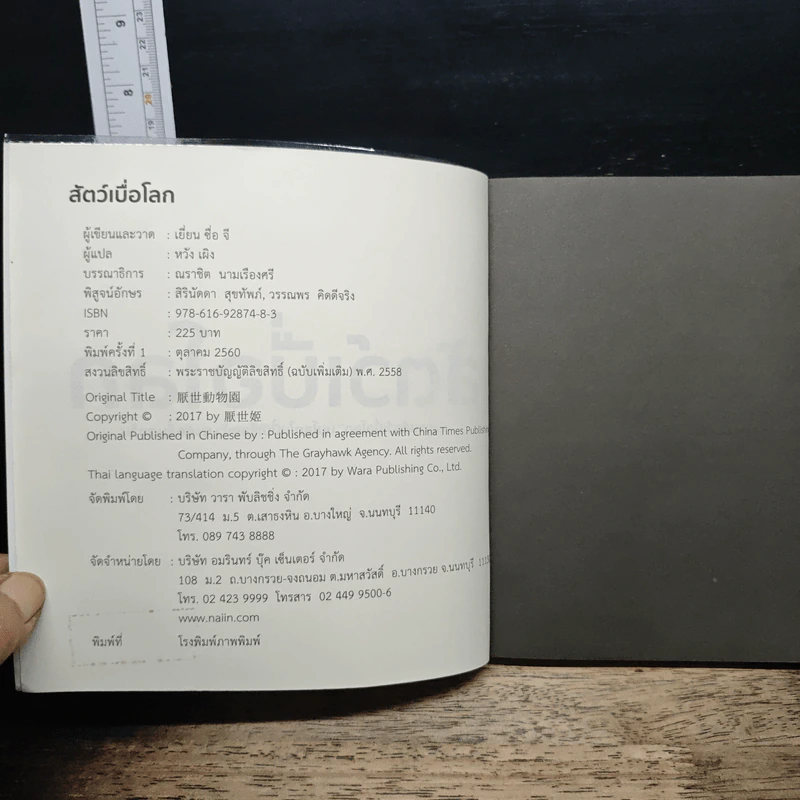 สัตว์เบื่อโลก
ผู้เขียนและวาด : เยี่ยน ซื่อ จี
ผู้แปล : หวัง เผิง
บรรณาธิการ : ณราชิต นามเรืองศรี
พิสูจน์อักษร : สิรินัดดา สุขทัพภ์, วรรณพร คิดดีจริง
ISBN : 978-616-92874-8-3
ราคา : 225 บาท
พิมพ์ครั้งที่ 1 : ตุลาคม 2560
สงวนลิขสิทธิ์ : พระราชบัญญัติลิขสิทธิ์ (ฉบับเพิ่มเติม) พ.ศ. 2558
Original Title : 厭世動物園
Copyright © : 2017 by 厭世姬
Original Published in Chinese by : Published in agreement with China Times Publishin
Company, through The Grayhawk Agency. All rights reserved.
Thai language translation copyright © : 2017 by Wara Publishing Co., Ltd.
จัดพิมพ์โดย : บริษัท วารา พับลิชชิ่ง จำกัด
73/414 ม.5 ต.เสาธงหิน อ.บางใหญ่ จ.นนทบุรี 11140
โทร. 089 743 8888
จัดจำหน่ายโดย : บริษัท อมรินทร์ บุ๊ค เซ็นเตอร์ จำกัด
108 ม.2 ถ.บางกรวย-จงถนอม ต.มหาสวัสดิ์ อ.บางกรวย จ.นนทบุรี
โทร. 02 423 9999 โทรสาร 02 449 9500-6
www.naiin.com
พิมพ์ที่ โรงพิมพ์ภาพพิมพ์
9
8
23
22
21
20
19